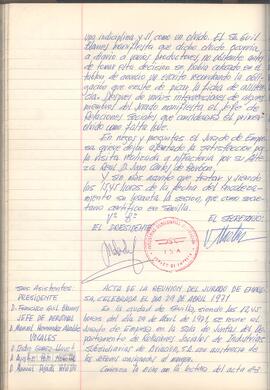 una indisciplina y sí, como un olvido. El Sr. Guil
Blanes manifiesta que dicho olvido ocurría
a diario a varios productores, no obstante antes
de tomar esta decisión se había colocado en el
tablón de anuncios un escrito recordando la obli-
gación que existe de picar la ficha de asisten-
cia. Después de varias intervenciones de algunos
miembros del Jurado manifiesta el Jefe de
Relaciones Sociales que consideraría el primer
olvido como falta leve.
En ruegos y preguntas el Jurado de Empre-
sa quiere dejar la satisfacción por
la visita realizada a Factoría por su Alte-
za Real D. Juan Carlos de Borbón.
Y sin más asunto que tratar y siendo
las horas de la fecha del encabeza-
miento se levanta la sesión, que como secre-
tario certifico en Sevilla.
Vº Bº
EL PRESIDENTE
EL SECRETARIO
I S A
Sres. Asistentes:
PRESIDENTE
D. Francisco Guil Blanes
JEFE DE PERSONAL
D. Manuel Hernández
VOCALES
ACTA DE LA REUNION DEL JURADO DE EMPRE-
SA, CELEBRADA EL DIA 29 DE ABRIL 1971
En la ciudad de Sevilla, siendo las 12
horas del día 29 de Abril de 1971, se reúne el
Jurado de Empresa en la Sala de Juntas del De-
partamento de Relaciones Sociales de Industrias
Subsidiarias de Aviación, S.A. con asistencia de
los señores consignados al margen.
Comienza la